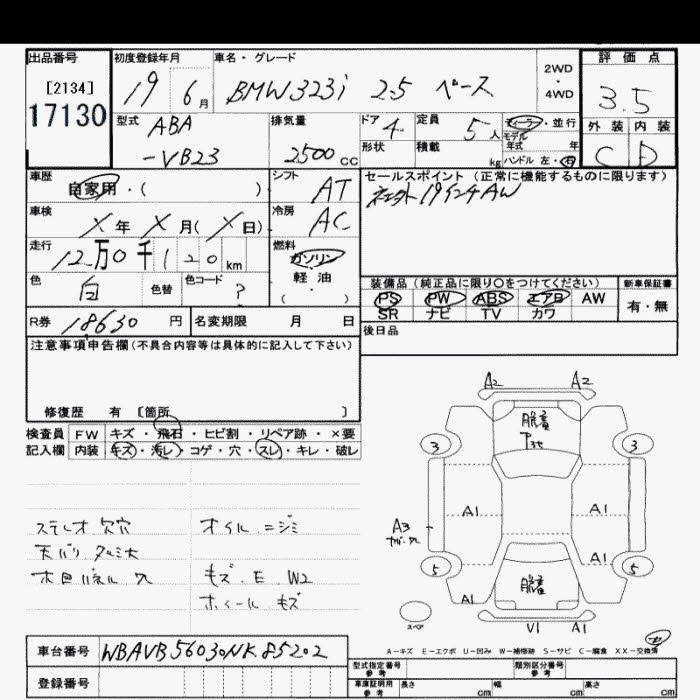 出品番号
[2134]
17130
初度登録年月
19 6月
車名・グレード
BMW323i 2.5 ベース
2WD
・
4WD
評価点
3.5
外装 内装
C D
型式
ABA
-VB23
排気量
2500cc
ドア 4
形状
定員 5人
積載 kg
ディーラー・並行
モデル
年式 年
ハンドル 左・右
車歴
自家用・( )
シフト
AT
セールスポイント(正常に機能するものに限ります)
社外19インチAW
車検
X年X月(X日)
冷房
AC
走行
12万0千120km
燃料
ガソリン
軽油
・
( )
色
白
色替
色コード
?
装備品(純正品に限り○をつけてください)
PS PW ABS エアB AW
SR ナビ TV カワ
新車保証書
有・無
R券 18630円
名変期限 月 日
後日品
注意事項申告欄(不具合内容等は具体的に記入して下さい)
修復歴 有 〔箇所 〕
検査員 FW キズ・飛石・ヒビ割・リペア跡・×要
記入欄 内装 キズ・汚レ・コゲ・穴・スレ・キレ・破レ
A2 A2
3 3
A1 A1
A3
A1
5 5
A1
V1 A1
スペア
ステレオ穴穴
オイルニジミ
天バリタルミ大
木目パネルワレ
キズ.E.W2
ホイールキズ
A-キズ E-エクボ U-凹み W-補修跡 S-サビ C-腐食 XX-交換済
車台番号 WBAVB56030NK85202
登録番号
型式指定番号
参考
類別区分番号
参考
車庫証明用
参考
長さ cm 幅 cm 高さ cm